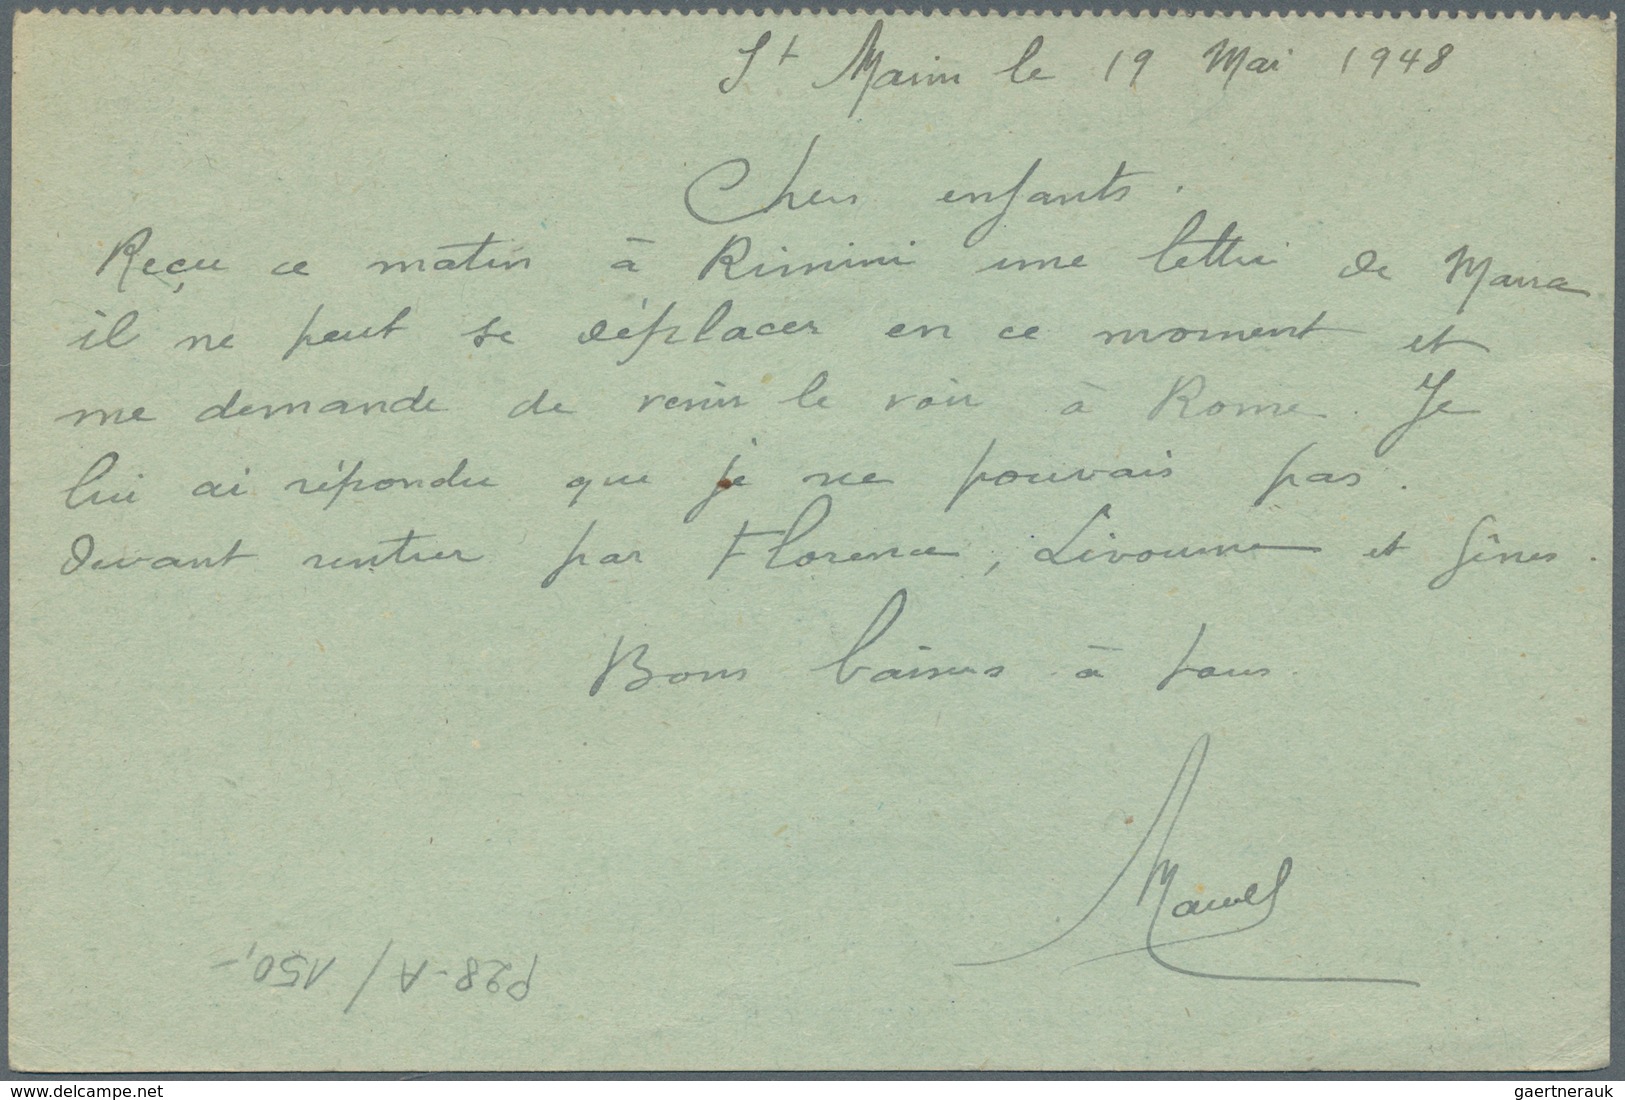 St Marin le 19 Mai 1948
Chers enfants.
Reçu ce matin à Rimini une lettre de
il ne peut se déplacer en ce moment et
me demande de venir le voir à Rome. Je
lui ai répondu que je ne pouvais pas.
devant rentrer par Florence, Livourne et Gênes.
Bons baisers à tous.
Marcel
P28-A / 150,-
www.delcampe.net
gaertnerauk